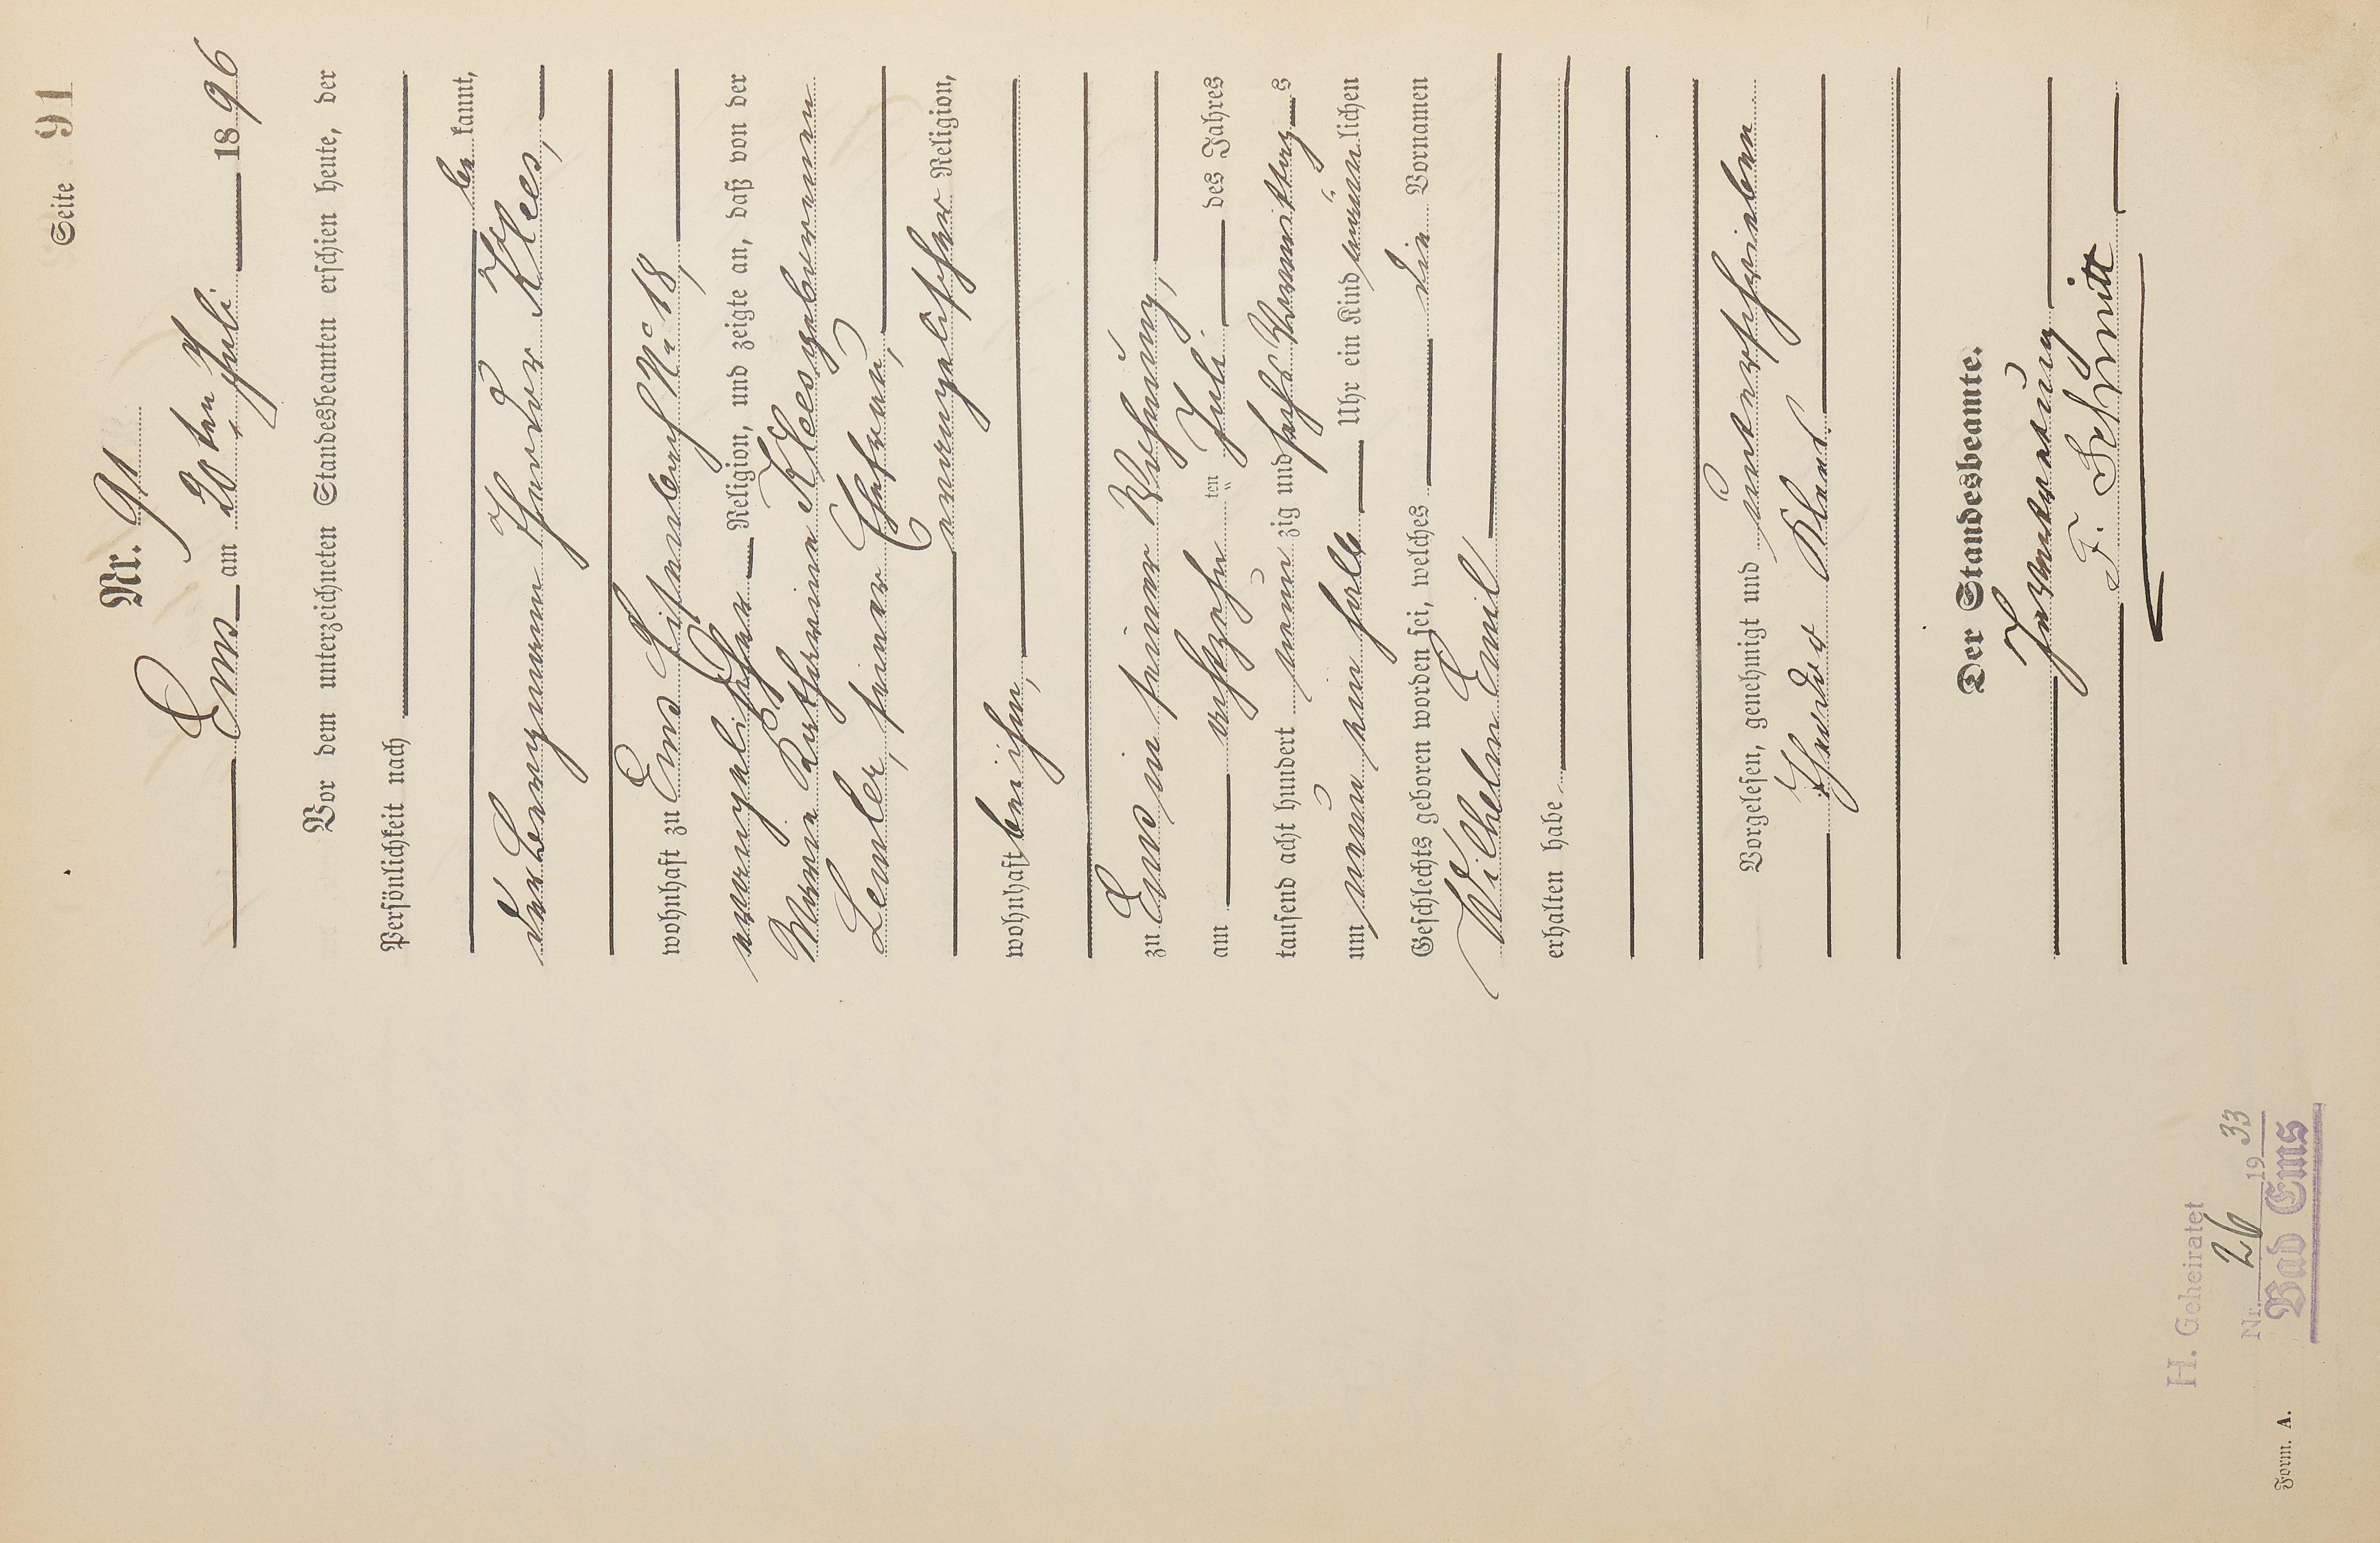 Seite 91
Nr. 91
Ems am 20ten Juli 1896
Vor dem unterzeichneten Standesbeamten erschien heute, der
Persönlichkeit nach
be kannt,
der Bergmann Theodor Klees,
wohnhaft zu Ems Eisenbach No 18,
evangelischer Religion, und zeigte an, daß von der
Maria Katharina Klees geborenen
Lemler, seiner Ehefrau,
evangelischer Religion,
wohnhaft bei ihm,
zu Ems in seiner Wohnung,
am achtzehn ten Juli des Jahres
tausend acht hundert neun zig und sechs Vormittags
um neun ein halb Uhr ein Kind männlichen
Geschlechts geboren worden sei, welches die Vornamen
Wilhelm Emil
erhalten habe
Vorgelesen, genehmigt und unterschrieben
Theodor Klees
Der Standesbeamte.
In Vertretung
F. Schmitt
H. Geheiratet
Nr. 26 1933
Bad Ems
Form. A.